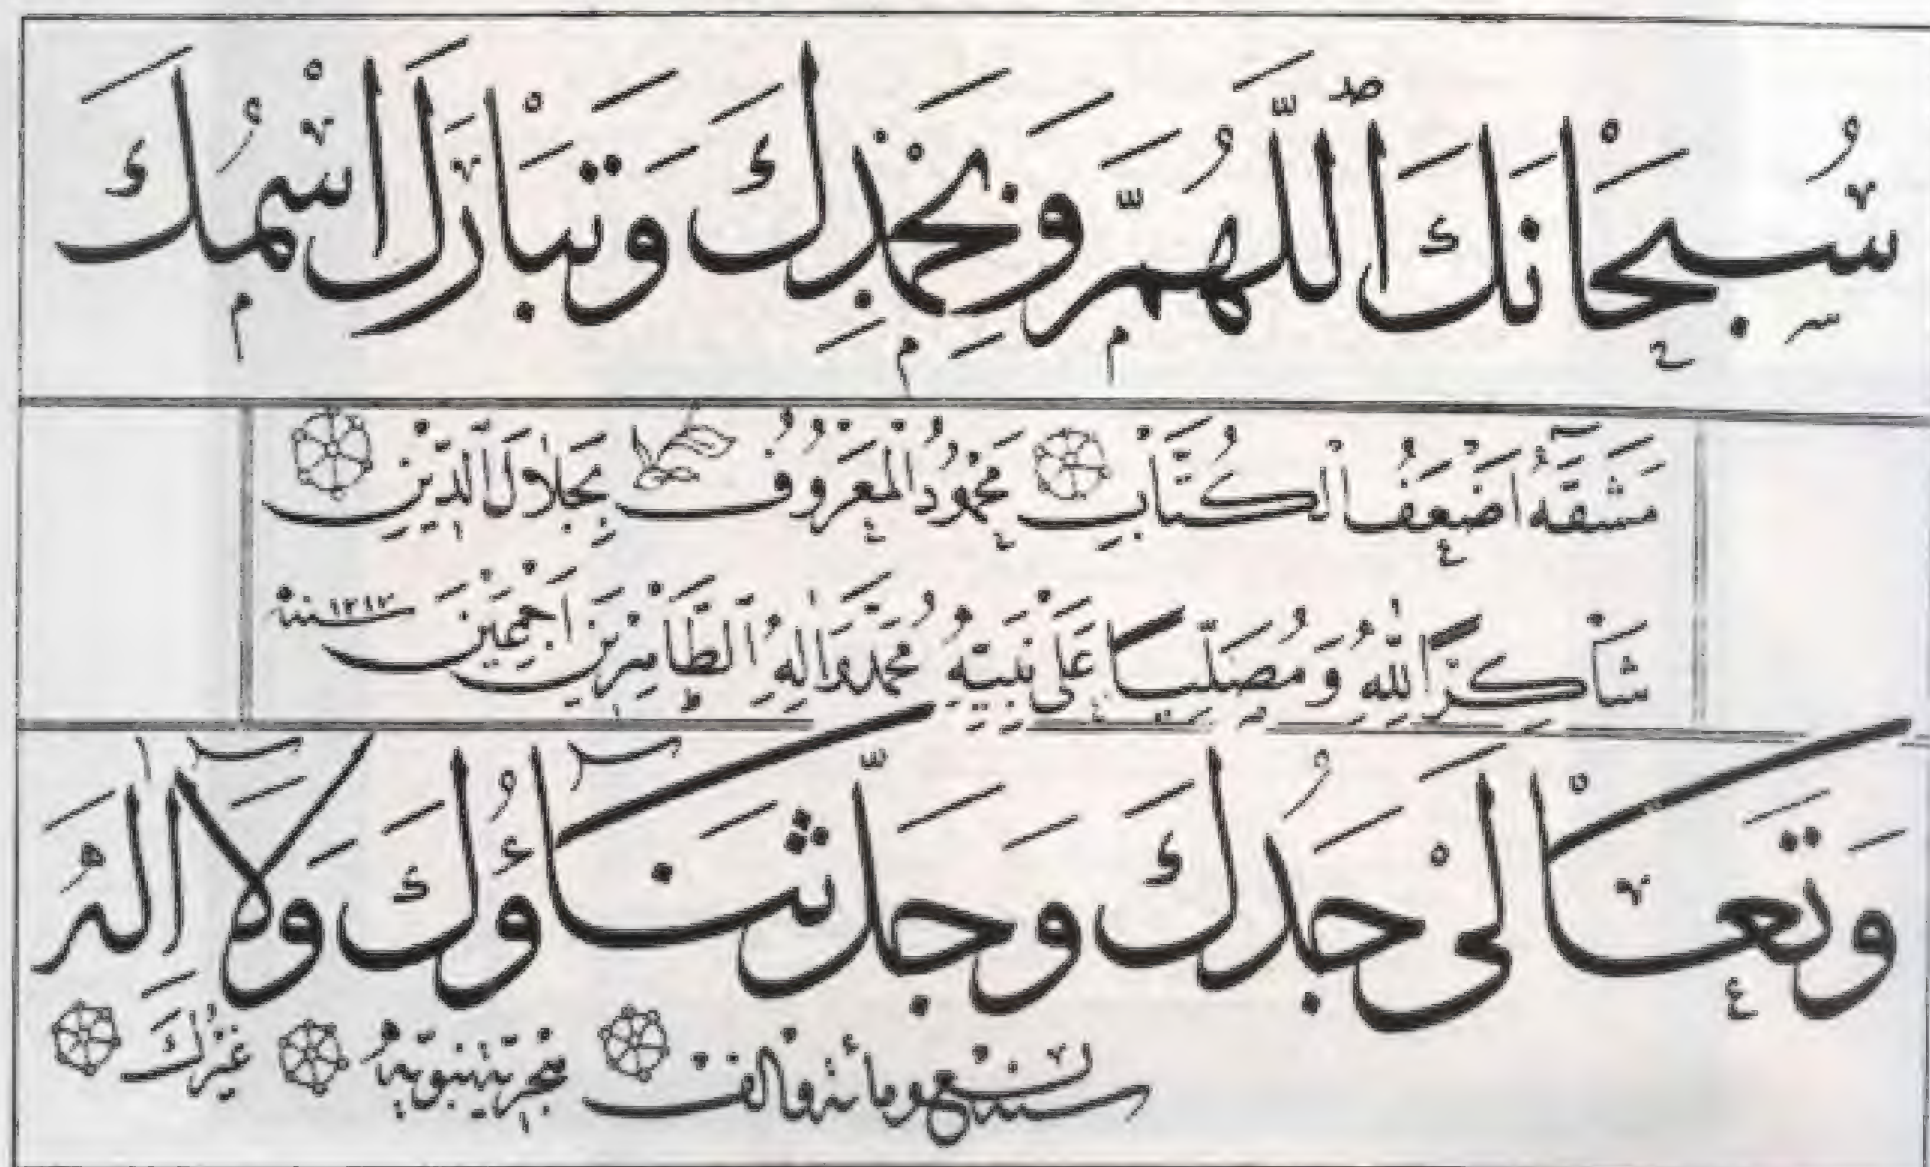 سُبْحَانَكَ اللّٰهُمَّ وَبِحَمْدِكَ وَتَبَارَكَ اسْمُكَ
مَشَقَهُ أَضْعَفُ الْكُتَّابِ مَحْمُودُ الْمَعْرُوفُ بِجَلَالِ الدِّينِ
شَاكِرًا لِلّٰهِ وَمُصَلِّيًا عَلَى نَبِيِّهِ مُحَمَّدٍ وَآلِهِ الطَّاهِرِينَ أَجْمَعِينَ سنة ١٢١٢
وَتَعَالَى جَدُّكَ وَجَلَّ ثَنَاؤُكَ وَلَا إِلٰهَ
غَيْرُكَ سنة تسع ومائة والف هجرية نبوية